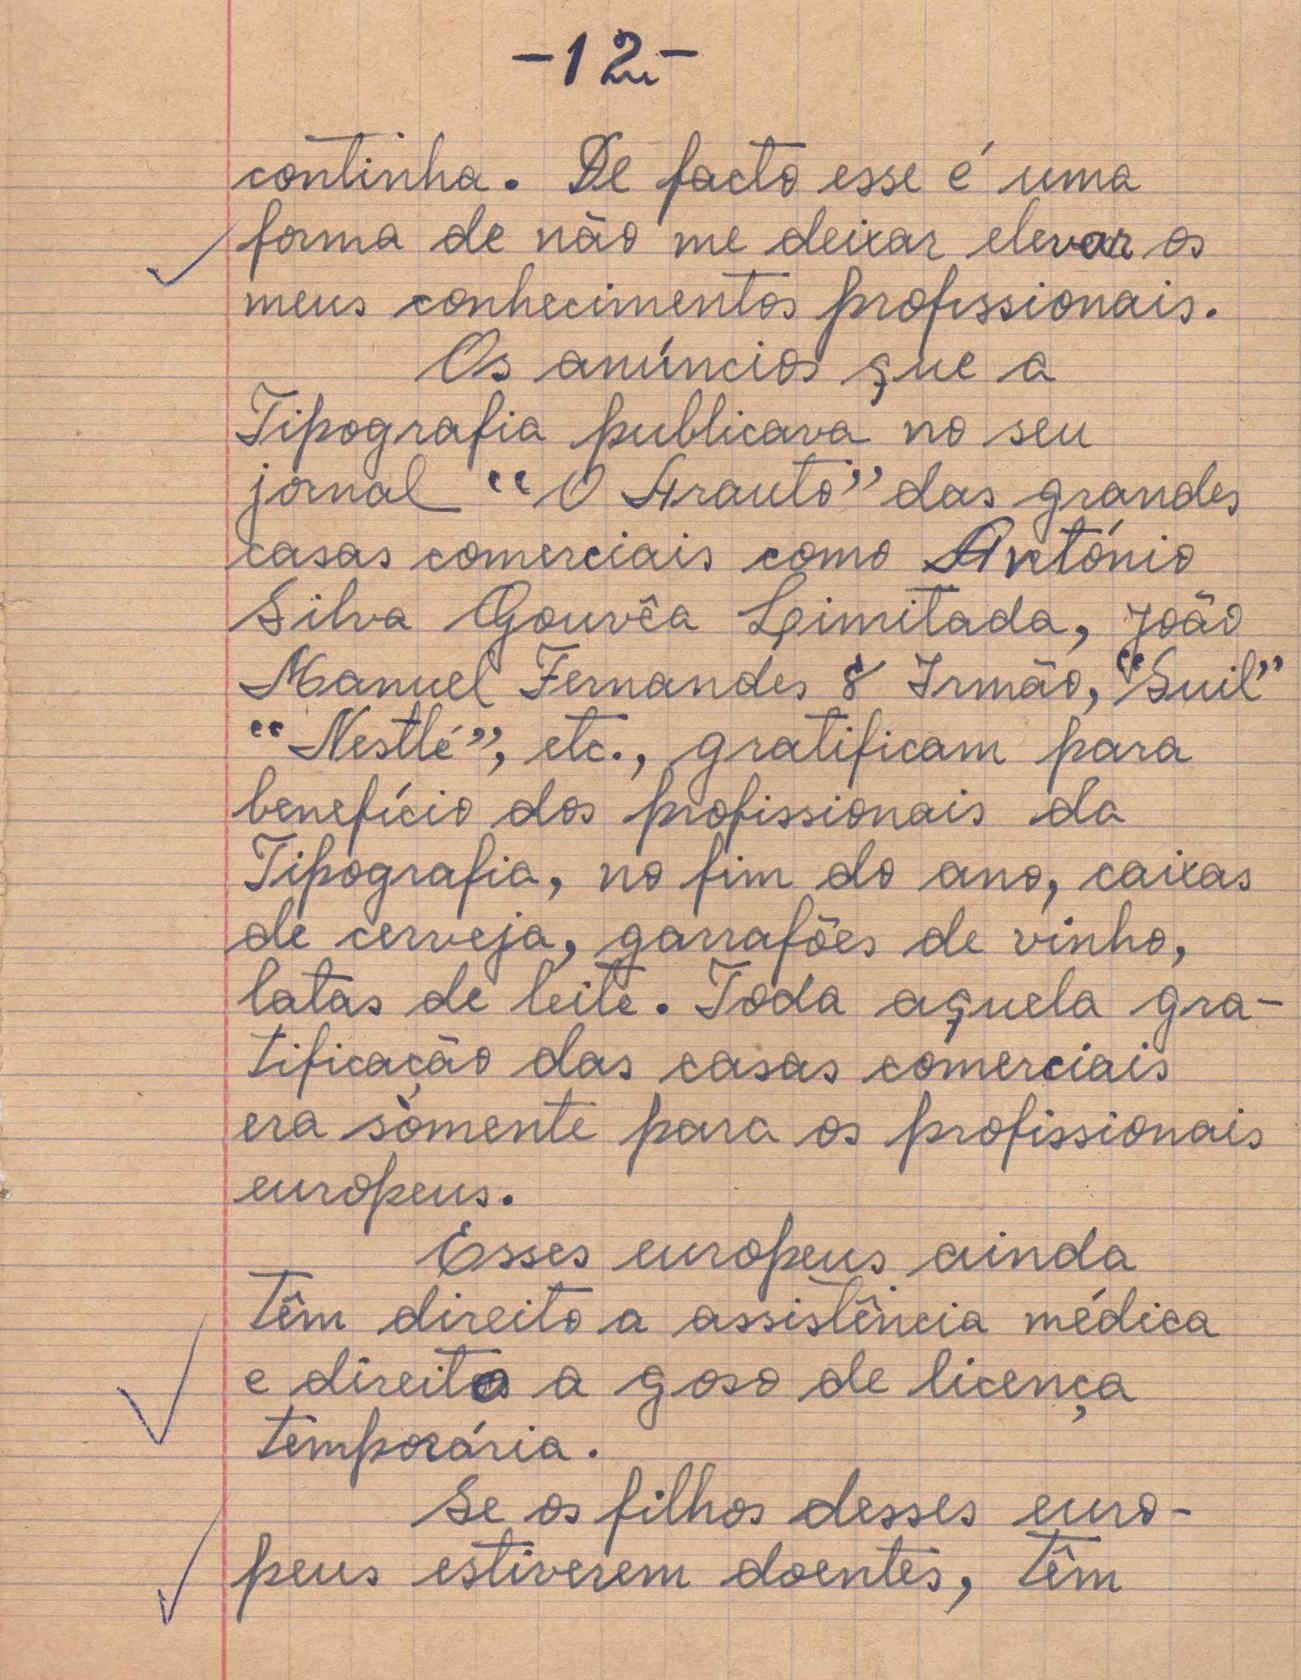 -12-
continha. De facto esse é uma
forma de não me deixar elevar os
meus conhecimentos profissionais.
Os anúncios que a
Tipografia publicava no seu
jornal "O Arauto" das grandes
casas comerciais como António
Silva Gouvêa Limitada, João
Manuel Fernandes & Irmão, "Suil"
"Nestlé", etc., gratificam para
benefício dos profissionais da
Tipografia, no fim do ano, caixas
de cerveja, garrafões de vinho,
latas de leite. Toda aquela gra-
tificação das casas comerciais
era sòmente para os profissionais
europeus.
Esses europeus ainda
têm direito a assistência médica
e direito a goso de licença
temporária.
Se os filhos desses euro-
peus estiverem doentes, têm